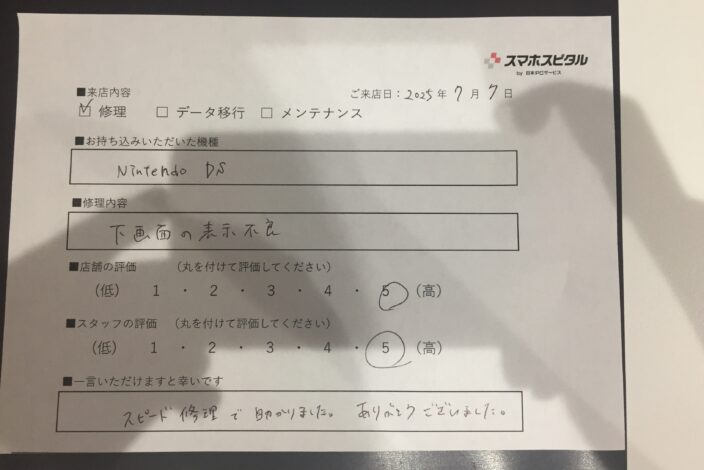 スマホスピタル
by 日本PCサービス
■来店内容
ご来店日：2025年 7月 7日
☑ 修理 □ データ移行 □ メンテナンス
■お持ち込みいただいた機種
Nintendo DS
■修理内容
下画面の表示不良
■店舗の評価 （丸を付けて評価してください）
（低） 1 ・ 2 ・ 3 ・ 4 ・ 5 （高）
■スタッフの評価 （丸を付けて評価してください）
（低） 1 ・ 2 ・ 3 ・ 4 ・ 5 （高）
■一言いただけますと幸いです
スピード修理で助かりました。ありがとうございました。